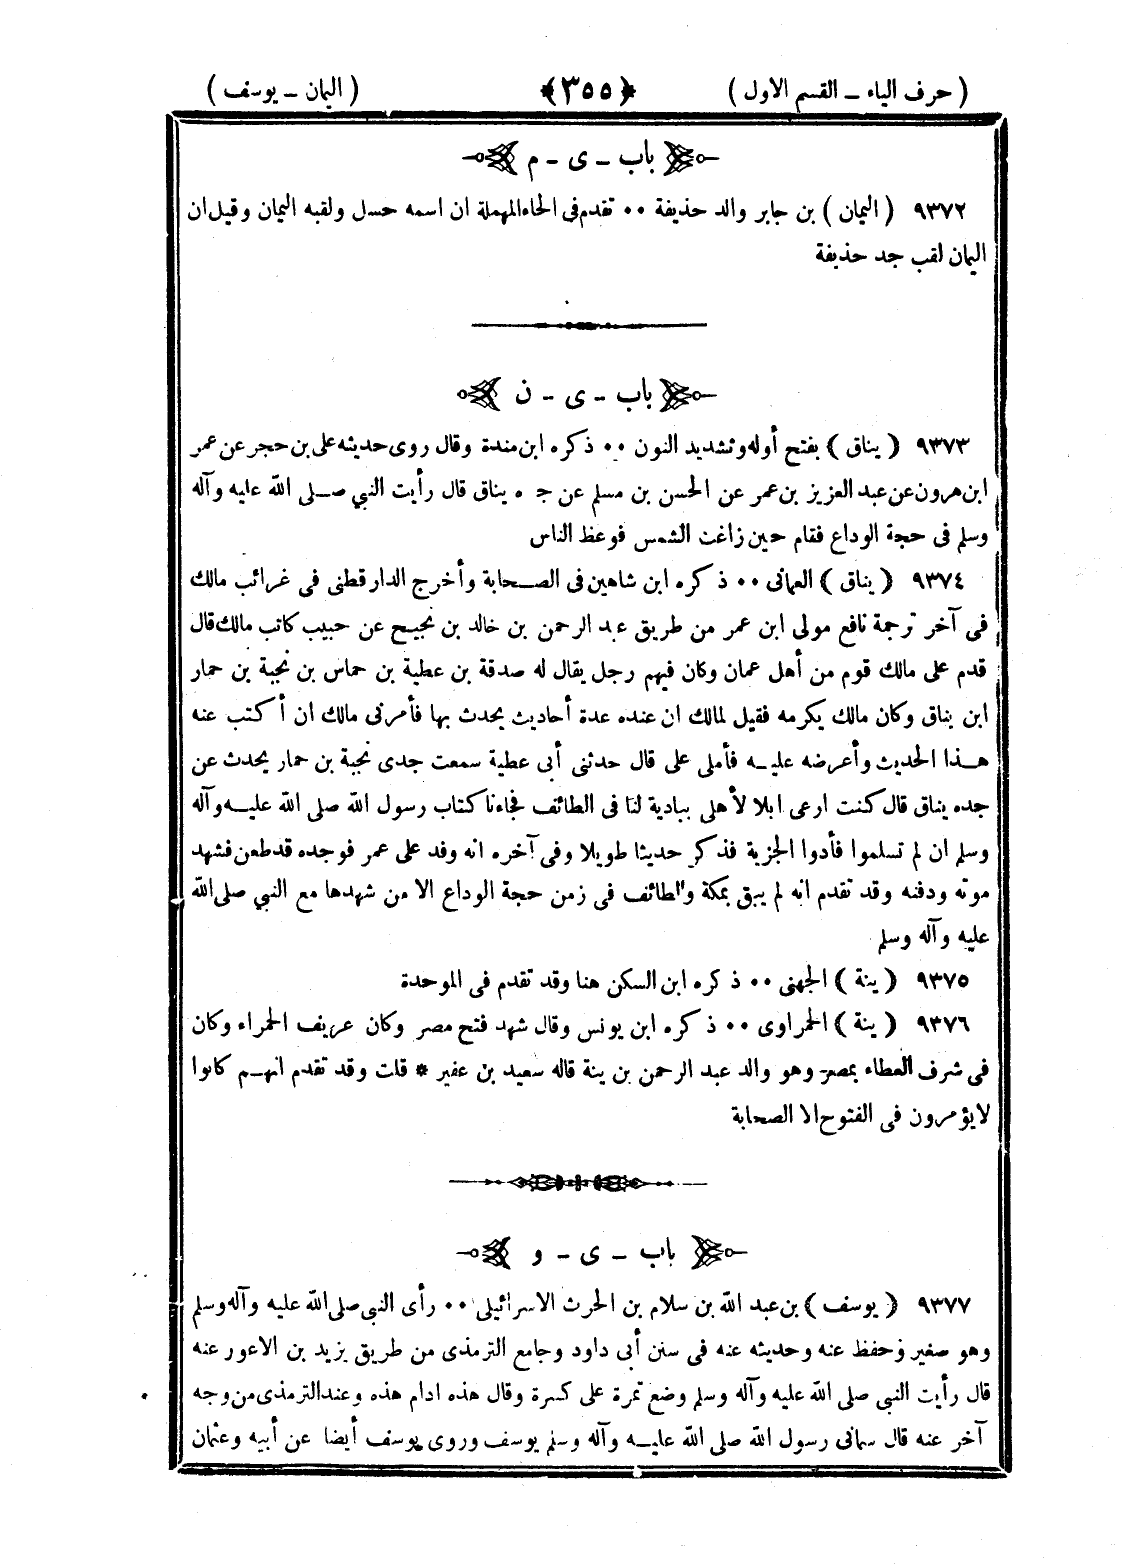 ( حرف الياء ــ القسم الاول ) ﴿٣٥٥﴾ ( اليمان ــ يوسف )
باب ــ ى ــ م
٩٣٧٢ ( اليمان ) بن جابر والد حذيفة ٠٠ تقدم فى الحاء المهملة ان اسمه حسل ولقبه اليمان وقيل ان
اليمان لقب جد حذيفة
باب ــ ى ــ ن
٩٣٧٣ ( يناق ) بفتح أوله وتشديد النون ٠٠ ذكره ابن مندة وقال روى حديثه على بن حجر عن عمر
ابن هرون عن عبد العزيز بن عمر عن الحسن بن مسلم عن جـ ه يناق قال رأيت النبي صلى الله عليه وآله
وسلم فى حجة الوداع فقام حين زاغت الشمس فوعظ الناس
٩٣٧٤ ( يناق ) العمانى ٠٠ ذكره ابن شاهين فى الصحابة وأخرج الدار قطنى فى غرائب مالك
فى آخر ترجمة نافع مولى ابن عمر من طريق عبد الرحمن بن خالد بن نجيح عن حبيب كاتب مالك قال
قدم على مالك قوم من أهل عمان وكان فيهم رجل يقال له صدقة بن عطية بن حماس بن نجبة بن حمار
ابن يناق وكان مالك يكرمه فقيل لمالك ان عنده عدة أحاديث يحدث بها فأمرنى مالك ان أكتب عنه
هذا الحديث وأعرضه عليه فأملى على قال حدثنى أبى عطية سمعت جدى نجبة بن حمار يحدث عن
جده يناق قال كنت ارعى ابلا لأهلى ببادية لنا فى الطائف فجاءنا كتاب رسول الله صلى الله عليه وآله
وسلم ان لم تسلموا فأدوا الجزية فذكر حديثا طويلا وفى آخره انه وفد على عمر فوجده قد طعن فشهد
موته ودفنه وقد تقدم انه لم يبق بمكة والطائف فى زمن حجة الوداع الا من شهدها مع النبي صلى الله
عليه وآله وسلم
٩٣٧٥ ( ينة ) الجهنى ٠٠ ذكره ابن السكن هنا وقد تقدم فى الموحدة
٩٣٧٦ ( ينة ) الحمراوى ٠٠ ذكره ابن يونس وقال شهد فتح مصر وكان عريف الحمراء وكان
فى شرف العطاء بمصر وهو والد عبد الرحمن بن ينة قاله سعيد بن عفير * قلت وقد تقدم انهم كانوا
لا يؤمرون فى الفتوح الا الصحابة
باب ــ ى ــ و
٩٣٧٧ ( يوسف ) بن عبد الله بن سلام بن الحرث الاسرائيلى ٠٠ رأى النبي صلى الله عليه وآله وسلم
وهو صغير وحفظ عنه وحديثه عنه فى سنن أبى داود وجامع الترمذى من طريق يزيد بن الاعور عنه
قال رأيت النبى صلى الله عليه وآله وسلم وضع تمرة على كسرة وقال هذه ادام هذه وعند الترمذى من وجه
آخر عنه قال سمانى رسول الله صلى الله عليه وآله وسلم يوسف وروى يوسف أيضا عن أبيه وعثمان